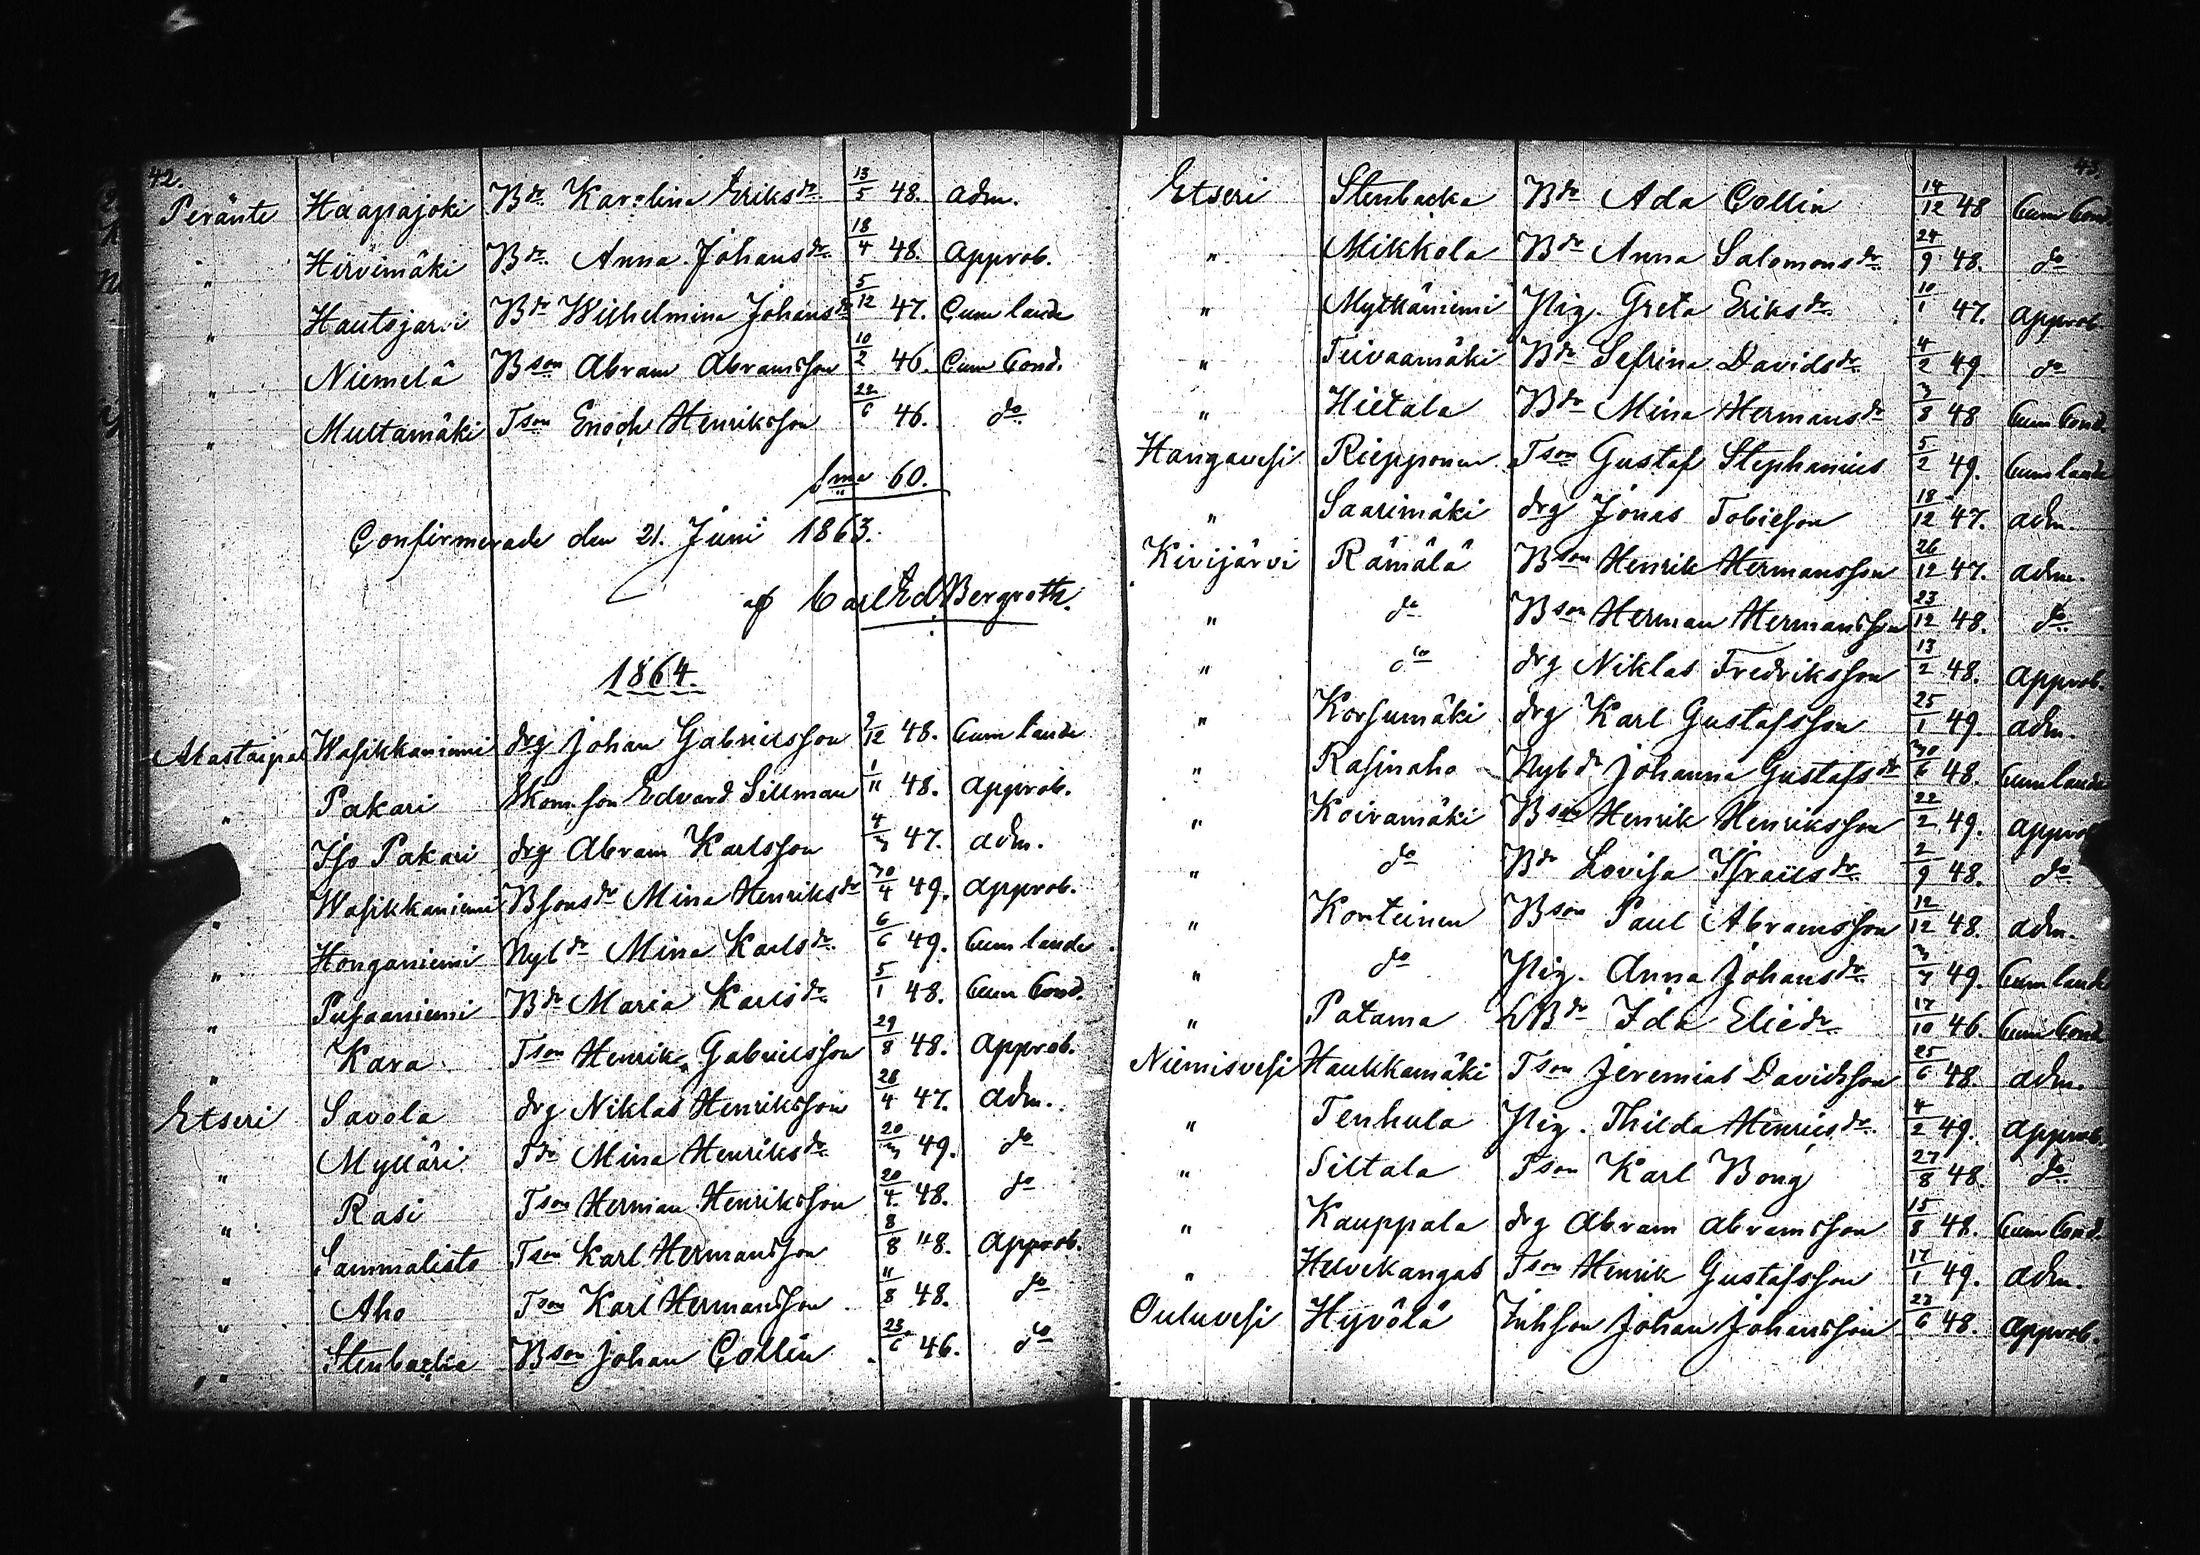 42.
Peränte Haapajoki Bdr. Karolina Eriksdr 13/5 48. adm.
" Hirvimäki Bdr. Anna Johansdr. 18/4 48. approb.
" Hautsjarvi Bdr Wilhelmina Johansdr 5/12 47. Cum laude
" Niemelä Bson Abram Abramsson 10/2 46. Cum Cond.
" Multamäki Tson Enoch Henriksson 22/6 46. do
Sma 60.
Confirmerade den 21. Juni 1863.
af Carl Ed. Bergroth.
1864.
Alastaipal Wasikkaniemi drg Johan Gabrielsson 9/12 48. Cum laude
" Pakari Skom. son Edvard Sillman 1/11 48. approb.
" Iso Pakari drg Abram Karlsson 4/3 47. adm.
" Wasikkaniemi Bsonsdr Mina Henriksdr 30/4 49. approb.
" Honganiemi Nybdr Mina Karlsdr. 6/6 49. Cum laude
" Pusaaniemi Bdr Maria Karlsdr. 5/1 48. Cum Cond.
" Kara Tson Henrik Gabrielsson 29/8 48. approb.
Etseri Savola drg Niklas Henriksson 28/4 47. adm.
" Mylläri Tdr Mina Henriksdr. 20/3 49. do
" Rasi Tson Herman Henriksson 20/4 48. do
" Sammalisto Tson Karl Hermansson 8/8 48. approb.
" Aho Tson Karl Hermansson 11/8 48. do
" Stenbacka Bson Johan Collin 23/6 46. do
43.
Etseri Stenbacka Bdr Ada Collin 14/12 48 Cum Cond
" Mikkola Bdr Anna Salomonsdr. 24/9 48. do
" Mytkäniemi Pig. Greta Eriksdr. 10/1 47. approb.
" Teivaamäki Bdr Sefrina Davidsdr. 4/2 49 do
" Hietala Bdr Mina Hermansdr 3/8 48 Cum Cond.
Hangavesi Riepponen Tson Gustaf Stephanius 5/2 49. Cum laude
" Saarimäki drg Jonas Tobieson 18/12 47. adm.
Kivijärvi Rämälä Bson Henrik Hermansson 26/12 47. adm.
" do Bson Herman Hermansson 23/12 48. do
" do drg Niklas Fredriksson 13/2 48. approb.
" Korsumäki drg Karl Gustafsson 25/1 49. adm.
" Rasinaho Nybdr Johanna Gustafsdr 30/6 48. Cum laude
" Koiramäki Bson Henrik Henriksson 22/2 49. approb
" do Bdr Lovisa Israelsdr. 2/9 48. do
" Konteinen Bson Paul Abramsson 12/12 48. adm.
" do Pig. Anna Johansdr. 3/7 49. Cum laude
" Patama LBdr Ida Eliedr. 17/10 46. Cum Cond
Niemisvesi Haukkamäki Tson Jeremias Davidsson 25/6 48. adm.
" Tenhula Pig. Thilda Henricsdr. 4/2 49. approb.
" Siltala Tson Karl Bong 27/8 48. do
" Kauppala drg Abram Abramsson 15/8 48. Cum Cond.
" Helvekangas Tson Henrik Gustafsson 17/1 49. adm.
Ouluvesi Hyvölä Inhson Johan Johansson 23/6 48. approb.